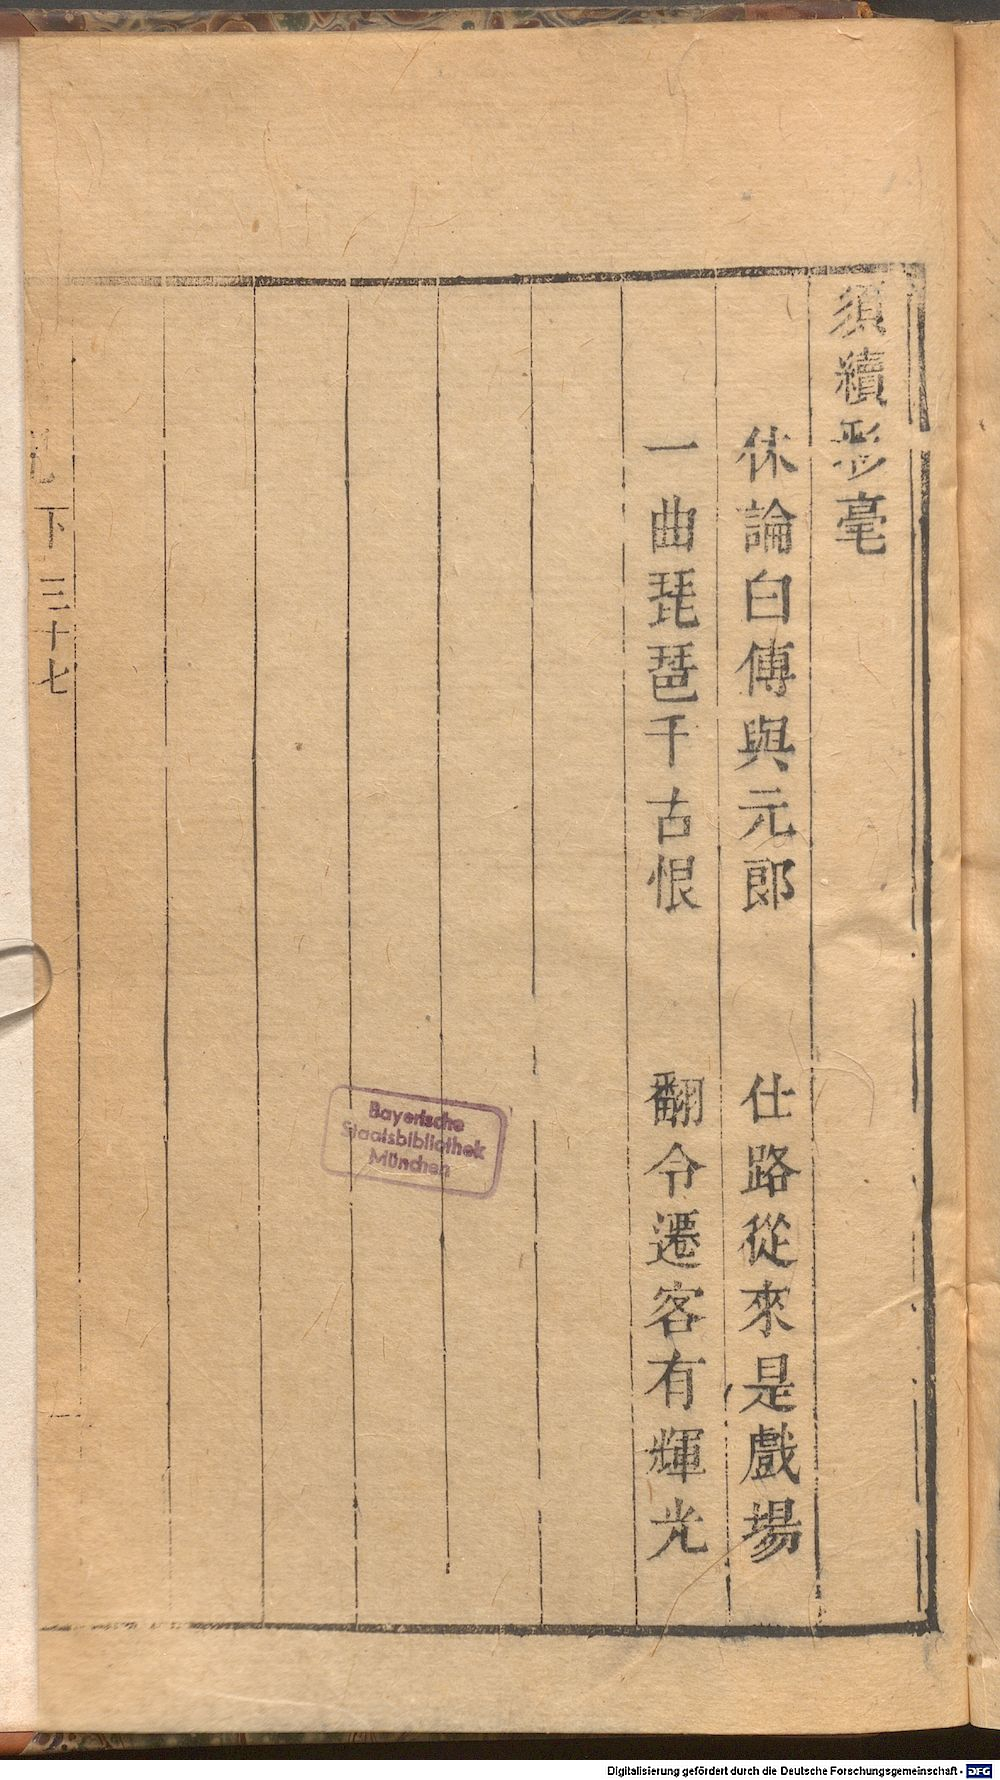 須續彩毫
休論白傅與元郎　仕路從來是戲場
一曲琵琶千古恨　翻令遷客有輝光
下　三十七
Bayerische
Staatsbibliothek
München
Digitalisierung gefördert durch die Deutsche Forschungsgemeinschaft - DFG